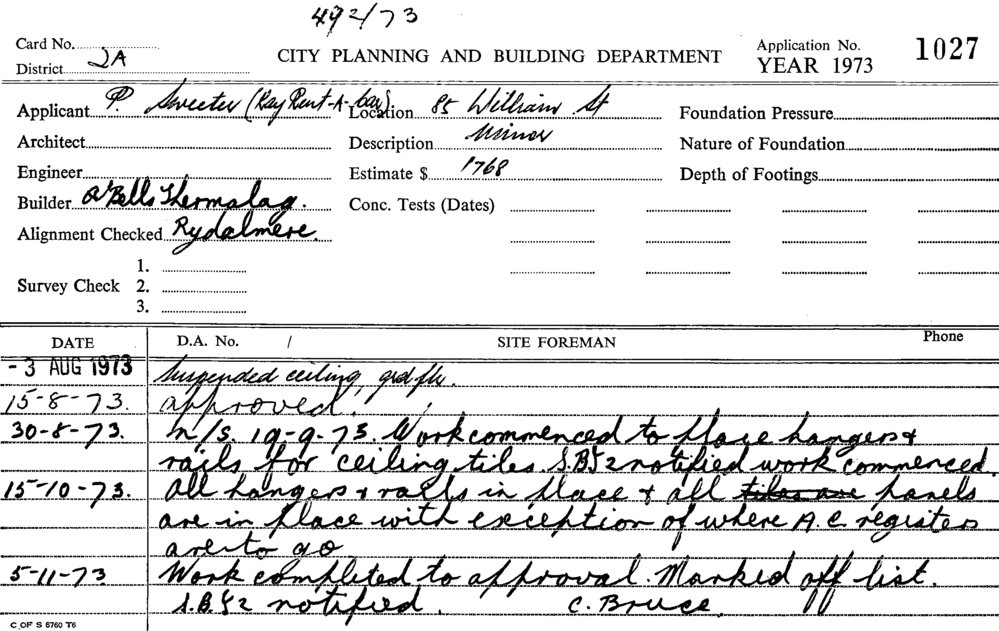 492/73
Card No.
District 2A
CITY PLANNING AND BUILDING DEPARTMENT
Application No. 1027
YEAR 1973
Applicant P. Sweeter (Kay Rent-A-Car) Location 85 William St Foundation Pressure
Architect Description Minor Nature of Foundation
Engineer Estimate $ 1768 Depth of Footings
Builder A'Bells Thermalag. Conc. Tests (Dates)
Alignment Checked Rydalmere.
1.
Survey Check 2.
3.
DATE D.A. No. / SITE FOREMAN Phone
- 3 AUG 1973 Suspended ceiling, grd flr.
15-8-73. approved.
30-8-73. n/s. 19-9-73. Work commenced to place hangers &
rails for ceiling tiles. notified work commenced.
15-10-73. All hangers & rails in place & all tiles are panels
are in place with exception of where A.C. registers
are to go
5-11-73 Work completed to approval. Marked off list.
notified. C. Bruce.
C OF S 5760 T6